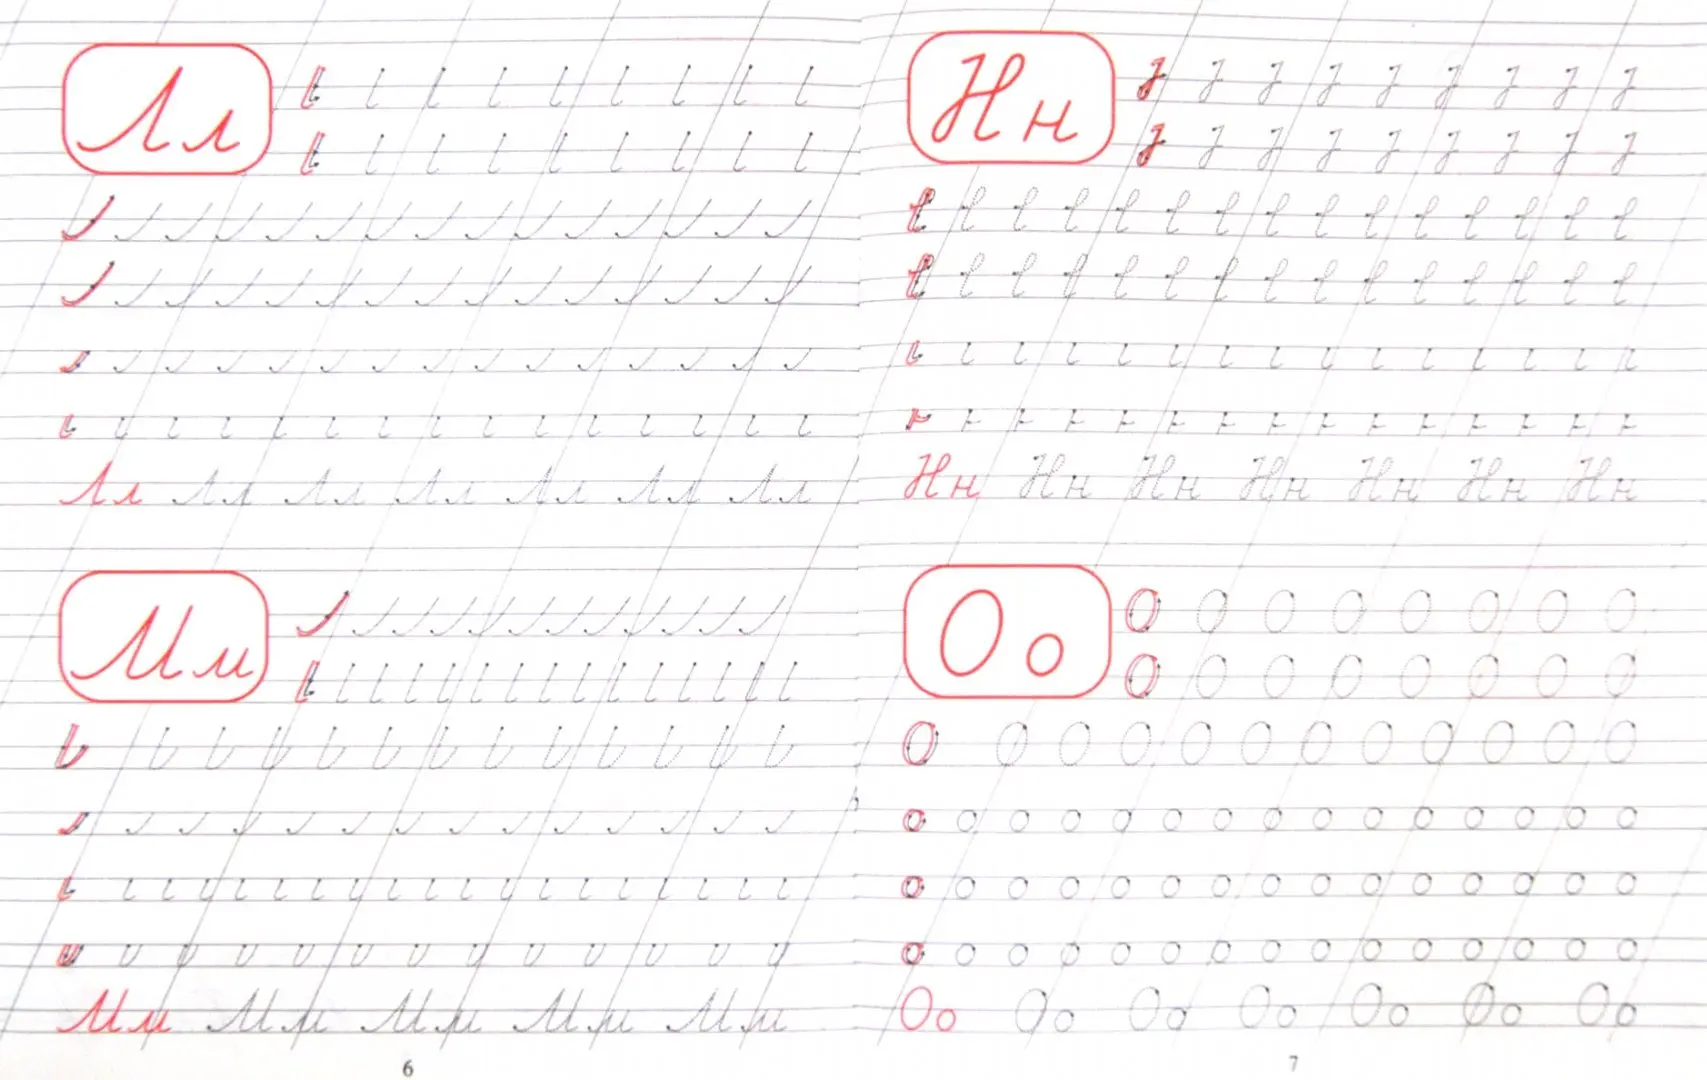 Лл
Лл Лл Лл Лл Лл Лл Лл
Мм
Мм Мм Мм Мм Мм
6
Нн
Нн Нн Нн Нн Нн Нн Нн
Оо
О О О О О О О О
О О О О О О О О
О О О О О О О О О О О О
о о о о о о о о о о о о о о о
о о о о о о о о о о о о о о о
о о о о о о о о о о о о о о о
Оо Оо Оо Оо Оо Оо Оо
7